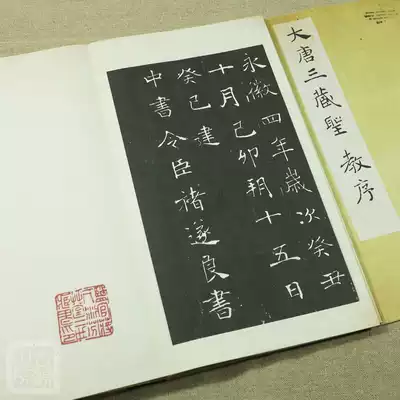 大唐三藏聖教序
永徽四年歲次癸丑
十月己卯朔十五日
癸巳建
中書令臣褚遂良書